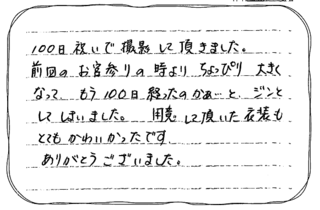 100日祝いで撮影して頂きました。
前回のお宮参りの時よりちょっぴり大きく
なって、もう100日経ったのかぁ…と、ジンと
してしまいました。 用意して頂いた衣装も
とてもかわいかったです
ありがとうございました。